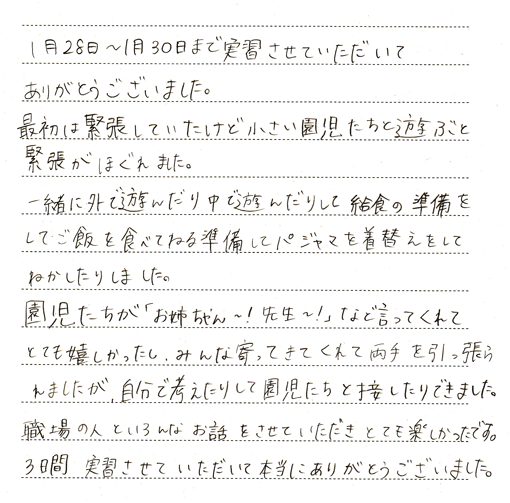 1月28日～1月30日まで実習させていただいて
ありがとうございました。
最初は緊張していたけど小さい園児たちと遊ぶと
緊張がほぐれました。
一緒に外で遊んだり中で遊んだりして給食の準備を
してご飯を食べてねる準備してパジャマを着替えをして
ねかしたりしました。
園児たちが「お姉ちゃん～!先生～!」など言ってくれて
とても嬉しかったし、みんな寄ってきてくれて両手を引っ張ら
れましたが、自分で考えたりして園児たちと接したりできました。
職場の人といろんなお話をさせていただきとても楽しかったです。
3日間 実習させていただいて本当にありがとうございました。